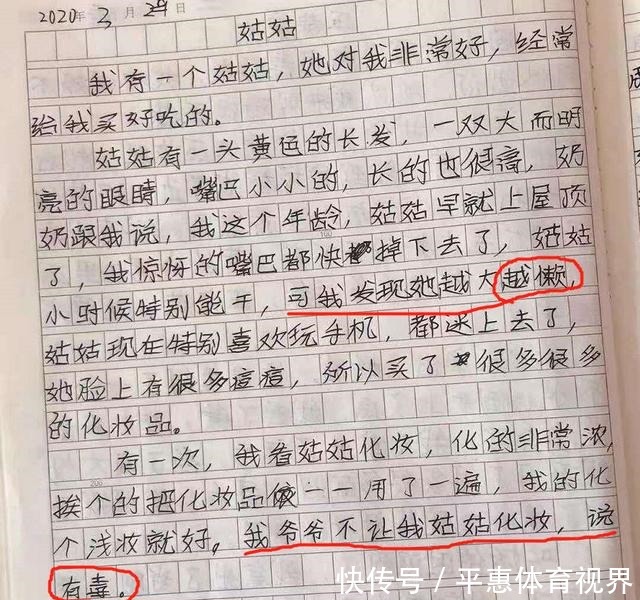 2020年 3月 29日
姑姑
我有一个姑姑，她对我非常好，经常
给我买好吃的。
姑姑有一头黄色的长发，一双大而明
亮的眼睛，嘴巴小小的，长的也很高，奶
奶跟我说，我这个年龄，姑姑早就上屋顶
了，我惊讶的嘴巴都快掉下去了，姑姑
小时候特别能干，可我发现她越大越懒，
姑姑现在特别喜欢玩手机，都迷上去了，
她脸上有很多痘痘，所以买了很多很多
的化妆品。
有一次，我看姑姑化妆，化的非常浓，
挨个的把化妆品一一用了一遍，我的化
个浅妆就好。我爷爷不让我姑姑化妆，说
有毒。
快传号/平惠体育视界